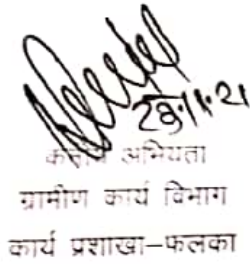 28.11.21
कनीय अभियंता
ग्रामीण कार्य विभाग
कार्य प्रशाखा-फलका